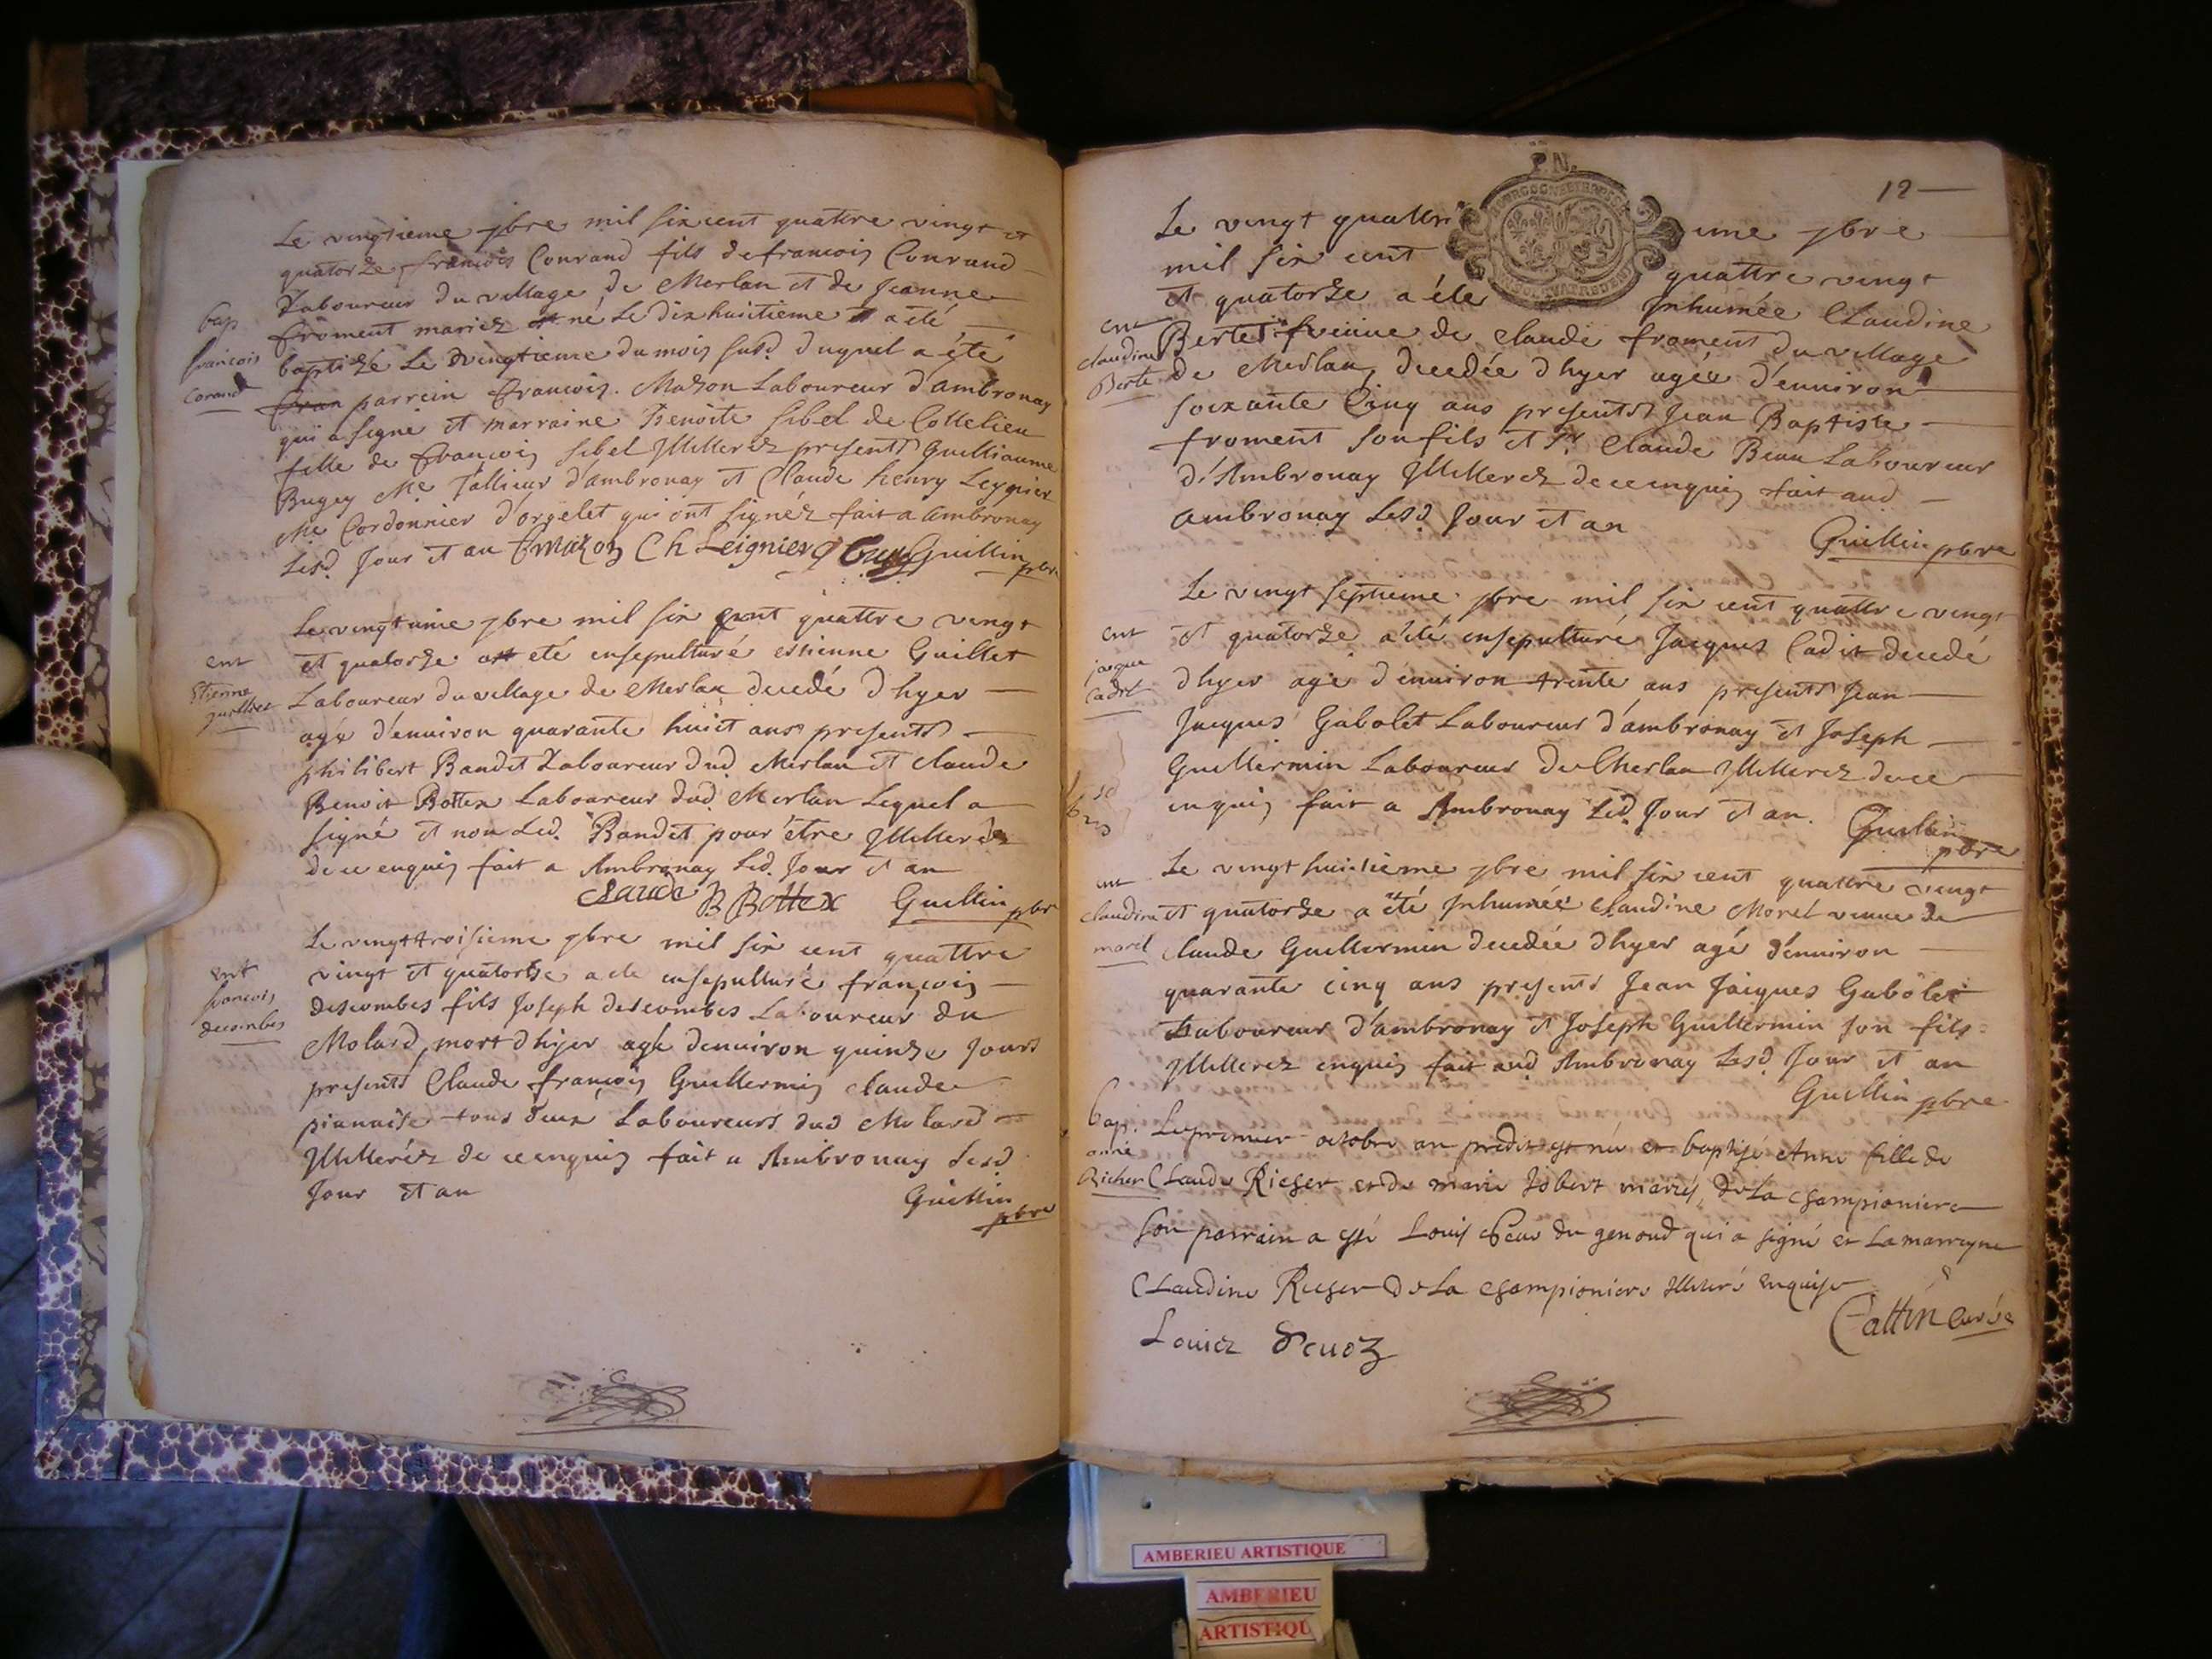 Le vingtieme 7bre mil six cent quattre vingt et
quatorze françois Conrand fils de francois Conrand
Laboureur du village de Merlan et de Jeanne
froment mariez né Le dixhuitieme a eté
baptizé Le vingtieme du mois susd. duquel a été
bap
francois
Corand
parrein francois Mazon Laboureur d'ambronay
qui a signé et marraine Benoite sibel de Cottelieu
fille de francois sibel Jllitterez presents Guilliaume
Bugey Me Tallieur d'ambronay et Claude henry Leygnier
Me Cordonnier d'orgelet qui ont signéz fait a Ambronay
Lesd. Jour et an f mazon C h Leignier Guillin pbre
Le vingt unie 7bre mil six cent quattre vingt
et quatorze eté ensepulturé estienne Guillet
ent
Etienne
guilliet
Laboureur du village de Merlan decedé d hyer
agé d'enuiron quarante huict ans presents
philibert Bandet Laboureur dud. Merlan et claude
Benoit Bottex Laboureur dud. Merlan Lequel a
signé et non Led. Bandet pour être Jllitteréz
de ce enquis fait a Ambronay Led. Jour et an
Claude B Bottex Guillin pbr
Le vingt troisieme 7bre mil six cent quattre
vingt et quatorze a ete ensepulturé françois
ent
francois
decombes
descombes fils Joseph descombes Laboureur du
Molard mort d hyer agé denuiron quinze Jours
presents Claude françois Guillermin claude
pianaise tous deux Laboureurs dud Molard
Jllitteréz de ce enquis fait a Ambronay Lesd
Jour et an Guillin
pbre
12
P. N.
Le vingt quattri ieme 7bre
mil six cent quattre vingt
et quatorze a été Inhumée Claudine
ent
claudine
Berte
Bertet femme de claude froment du village
de Merlan decedée d hyer agée d'enuiron
soixante Cinq ans presents Jean Baptiste
froment son fils et Sr. Claude Beau Laboureur
d'Ambronay Jllitterez de ce enquis fait aud
Ambronay Lesd Jour et an
Guillin pbre
Le vingt septieme 7bre mil six cent quattre vingt
ent
jacque
cadit
et quatorze a été ensepulturé Jacques Cadit decedé
d hyer agé d'enuiron trente ans presents Jean
Jacques Gabolet Laboureur d'ambronay et Joseph
Guillermin Laboureur de Cherlan Jllitterez de ce
enquis fait a Ambronay Led. Jour et an. Guillin
pbre
Le vingt huitieme 7bre mil six cent quattre vingt
ent
claudine
morel
et quatorze a été Inhumée Claudine Morel veuue de
claude Guillermin decedée d hyer agé d'enuiron
quarante cinq ans presents Jean Jacques Gabolet
Laboureur d'ambronay et Joseph Guillermin son fils
Jllitterez enquis fait aud Ambronay Lesd Jour et an
Guillin pbre
bap.
anne
Richer
Le premier octobre an predit est née et baptisé Anne fille de
Claude Richer et de marie Jobert mariés de La championiere
Son parrain a esté Louis du genoud qui a signé et La marreyne
Claudine Richer de La championiere Jlliteré enquise
Cattin Curé
Louiez
AMBERIEU ARTISTIQUE
AMBERIEU
ARTISTIQU